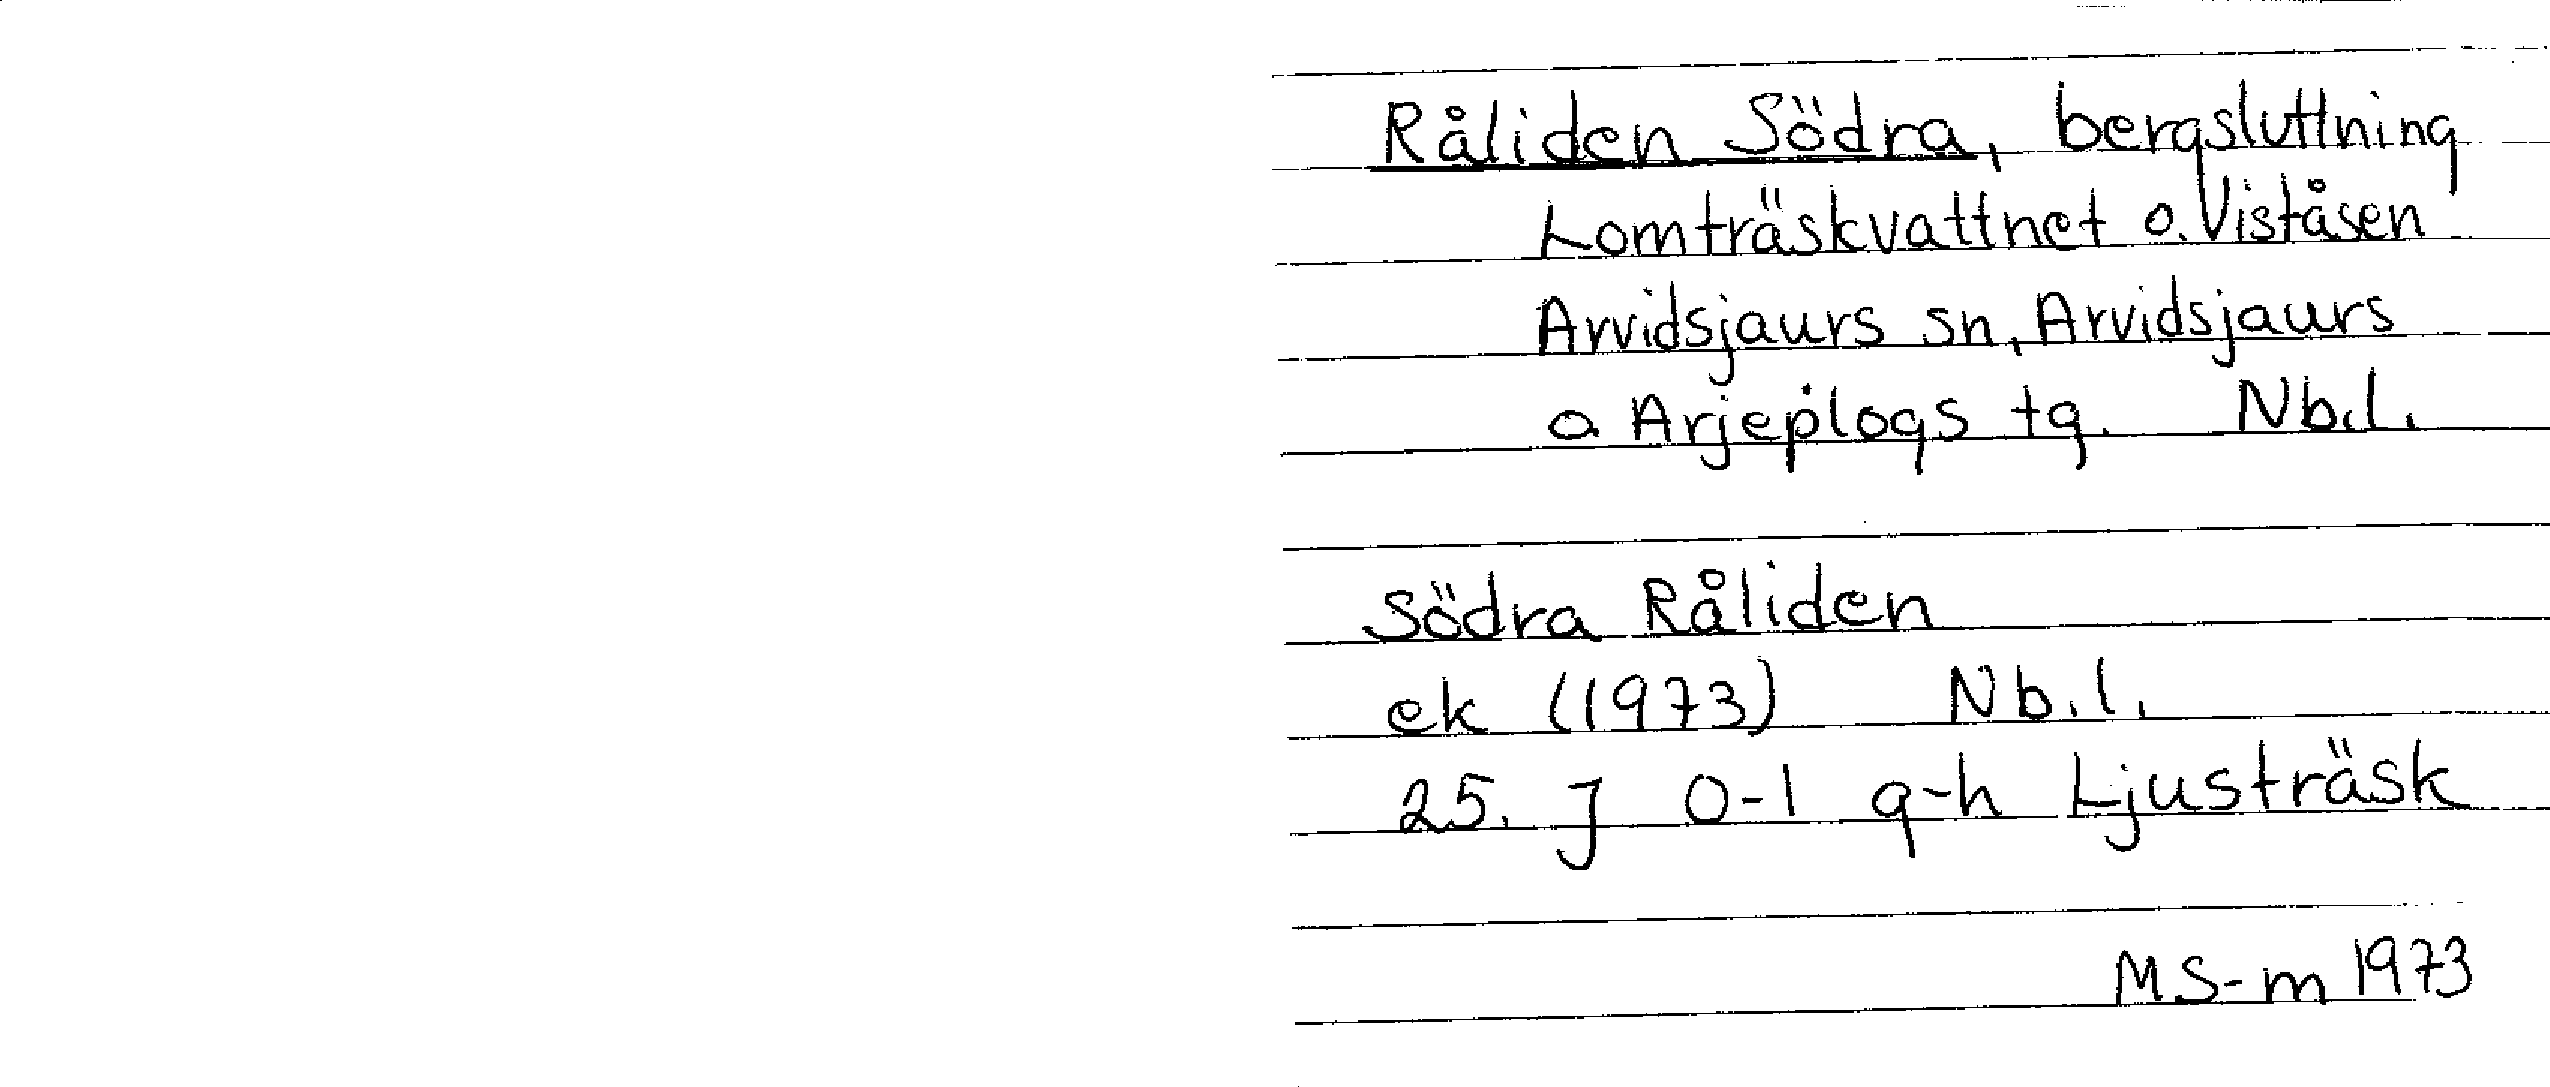 Råliden Södra, bergsluttning
Lomträskvattnet o. Viståsen
Arvidsjaurs sn, Arvidsjaurs
o Arjeplogs tg. Nb.l.
Södra Råliden
ek (1973) Nb.l.
25. J 0-1 g-h Ljusträsk
MS-m 1973